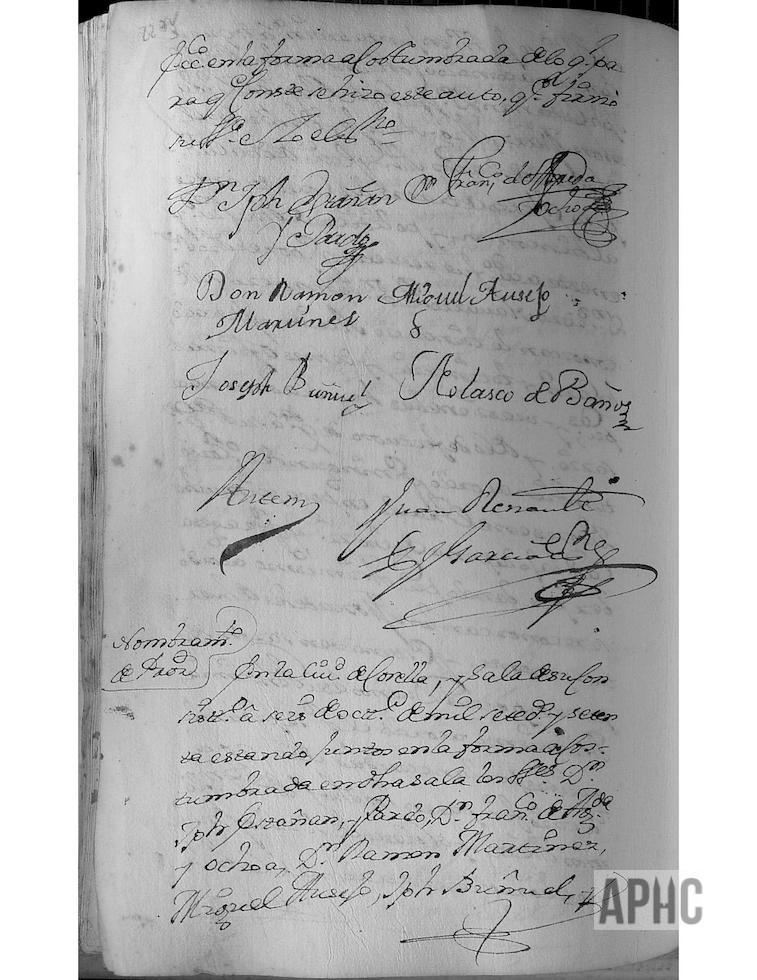 en la forma acostumbrada de lo q.e pa
ra q.e conste se hizo este auto, q.e firmó
D.n Jph Escañan Fran.co de
y Pardo Ochoa
Don Ramon Miguel Ausejo
Martines
Joseph Buñuel Nolasco de Baños
Antemi Juan Renault
Garcia
Nombram.to
de
En la Ciu.d de Corella, y Sala de su Con
sist.o a seis de oct.e de mil setec.s y seten
ta estando juntos en la forma acos-
tumbrada en dha sala los SS.res D.n
Jph Escañan, y Pardo, D.n Fran.co de
y Ochoa, D.n Ramon Martinez,
Miguel Ausejo, Jph Buñuel, y
APHC